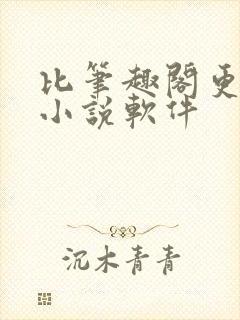 比筆趣閣更
小說軟件
沉木青青